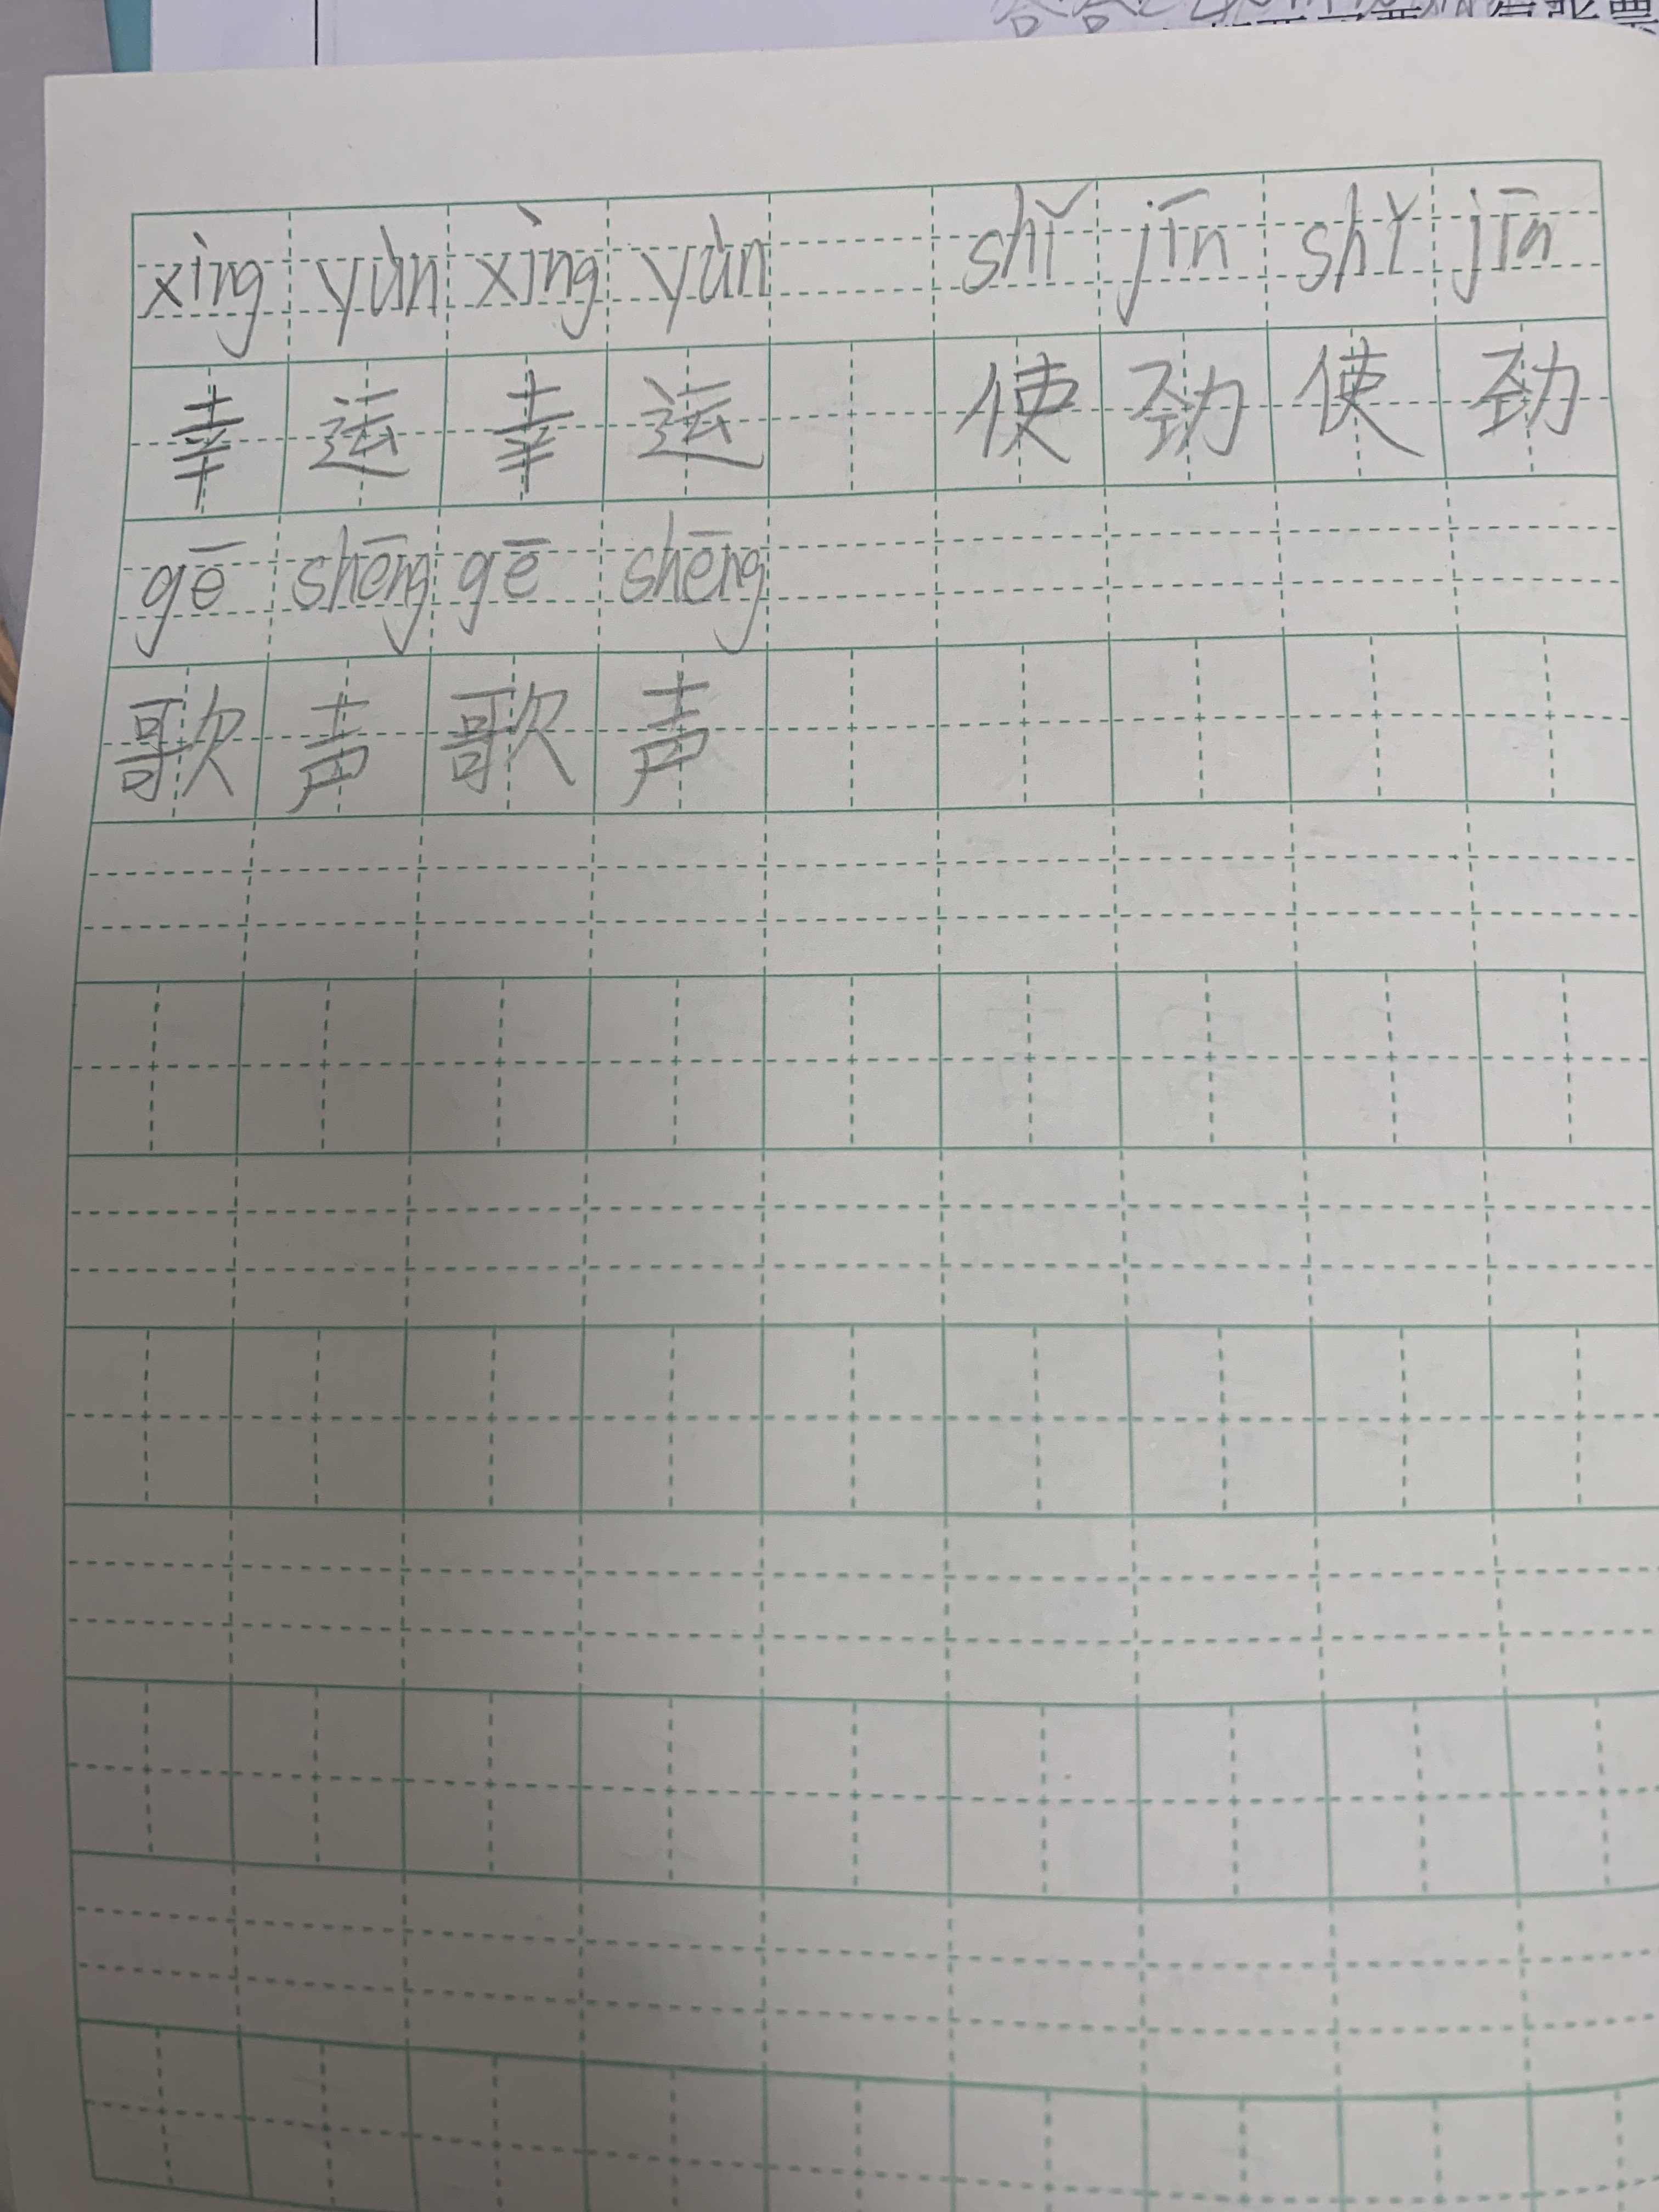 xìng yùn xìng yùn shǐ jīn shǐ jīn
幸运幸运 使劲使劲
gē shēng gē shēng
歌声歌声